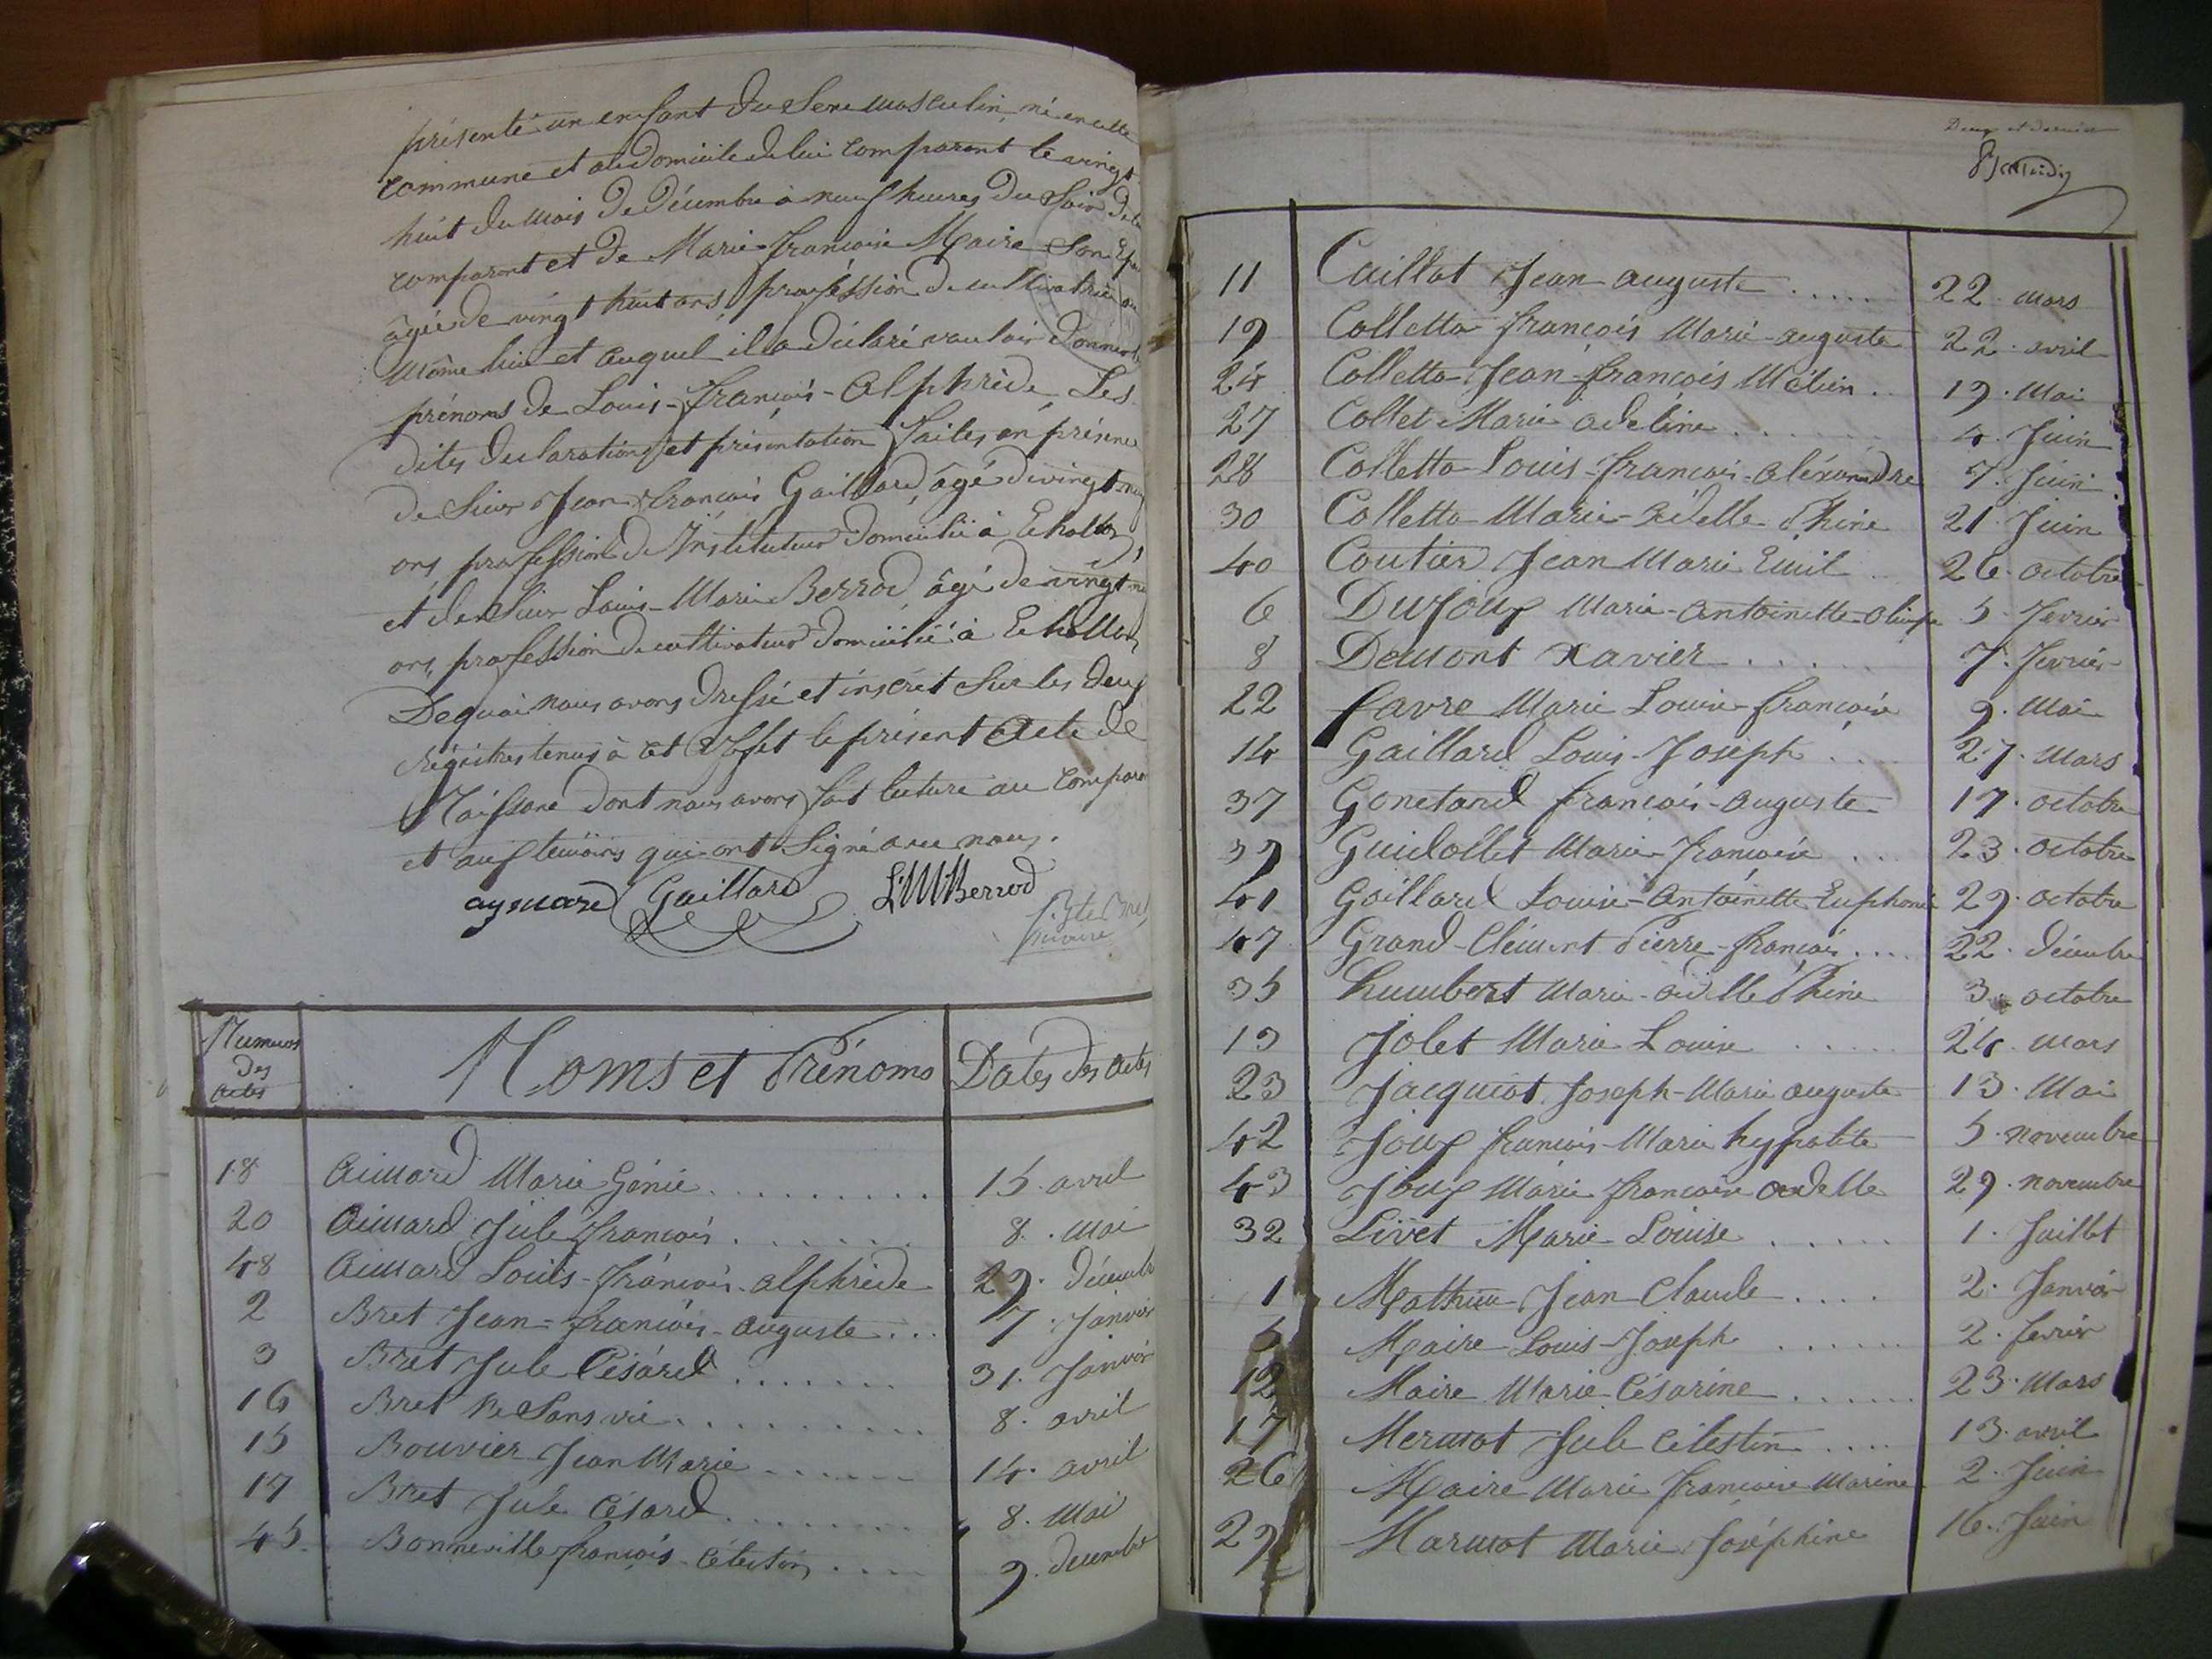 présenté un enfant du Sexe masculin, né en cette
commune et au domicile de lui comparant le vingt
huit du mois de décembre à neuf heures du Soir de
comparant et de Marie françoise Maire Son
âgée de vingt huit ans, profession de cultivatrice au
même lieu et auquel il a déclaré vouloir donner les
prénoms de Louis-françois-Alphride Les
dites déclarations et présentation faites en
de Sieur Jean françois Gaillard, âgé de vingt
ans profession de Instituteur domicilié à Echallon,
et de Sieur Louis-Marie Berrod, âgé de vingt
ans, profession de cultivateur domicilié à Echallon
De quoi nous avons dressé et inscrit Sur les deux
régistres tenus à cet effet le présent Acte de
Naissance dont nous avons fait lecture au
et aux témoins qui ont Signé avec nous.
aymard Gaillard L M Berrod
Numeros des actes Noms et Prénoms Dates des actes
18 Aimard Marie Génie 15. avril
20 Aimard Jule françois 8. mai
48 Aimard Louis-françois-Alphride 29. décembre
2 Bret Jean-françois-auguste 7. Janvier
3 Bret Jule Césard 31. Janvier
16 Bret Né Sans vie 8. avril
15 Bouvier Jean Marie 14. avril
19 Bret Jule Césard 8. Mai
45 Bonneville françois-Célestin 9. decembre
Deux et dernier
11 Caillat Jean auguste 22. mars
19 Colletta françois Marie-auguste 22. avril
24 Colletta Jean-françois 19. Mai
27 Collet Marie adeline 4. Juin
28 Colletta Louis-françois-aléxandre 7. Juin
30 Colletta Marie-adelle-Phine 21. Juin
40 Coutier Jean Marie Emil 26. octobre
6 Dufour Marie-Antoinette-Olimpe 5. fevrier
8 Demont Xavier 7. fevrier
22 favre Marie Louise-françoise 9. Mai
14 Gaillard Louis-Joseph 27. mars
37 Gonetard françois-auguste 17. octobre
39 Guidollet Marie-françoise 23. octobre
41 Gaillard Louise-Antoinette 29. octobre
47 Grand-Clément Pierre-françois 22. décembre
35 humbert Marie-adelle Phine 3. octobre
13 Jolet Marie Louise 24. mars
23 Jacquiot Joseph-Marie auguste 13. Mai
42 Joux françois-Marie hypolite 5. novembre
43 Joux Marie françoise adelle 29. novembre
32 Livet Marie Louise 1. Juillet
1 Mathieu Jean Claude 2. Janvier
Maire Louis-Joseph 2. fevrier
12 Maire Marie Césarine 23. Mars
17 Mermot Jule Celestin 13. avril
26 Maire Marie françoise Marine 2. Juin
29 Marmot Marie Joséphine 16. Juin